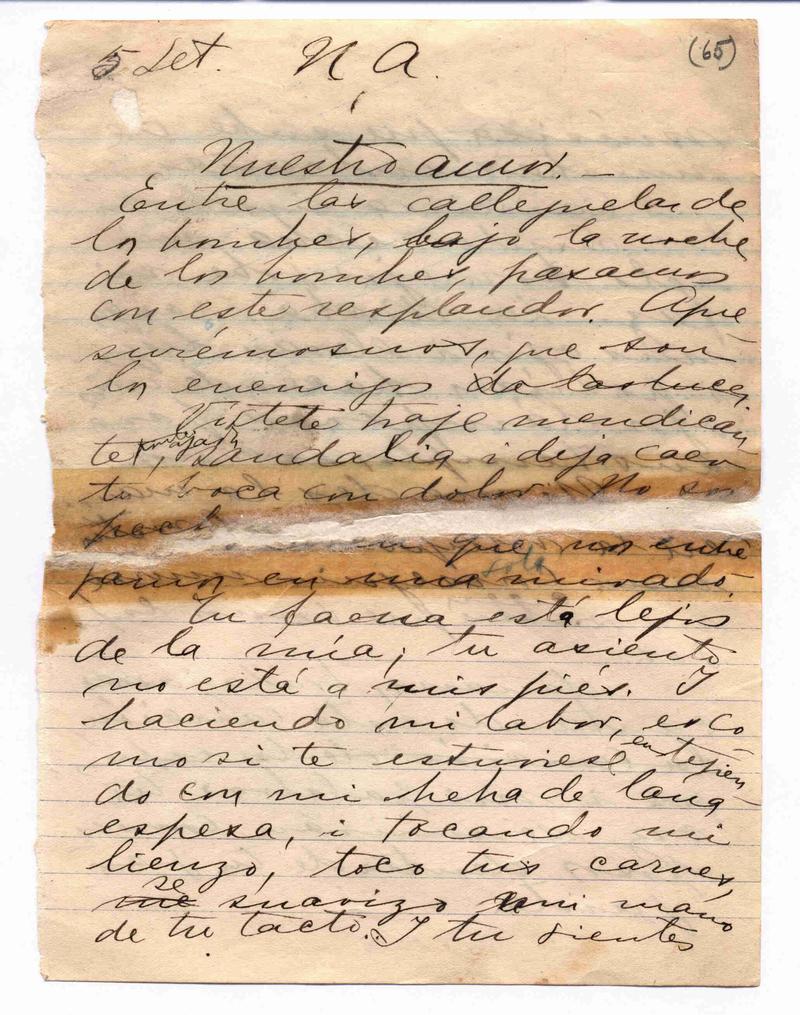 5 Set. N A. (65)
Nuestro amor.—
Entre las callejuelas de
los hombres, bajo la noche
de los hombres, pasamos
con este resplandor. Apre
surémosnos, que son
los enemigos
Vístete traje mendican
te, sandalia i deja caer
tu boca con dolor. No
que nos entre
solo
gamos en una mirada.
Tu faena está lejos
de la mía; tu asiento
no está a mis piés. I
haciendo mi labor, es co
mo si te estuviese entejien
do con mi hebra de lana
espesa, i tocando mi
lienzo, toco tus carnes,
se
me suaviza mi mano
de tu tacto. I tu sientes